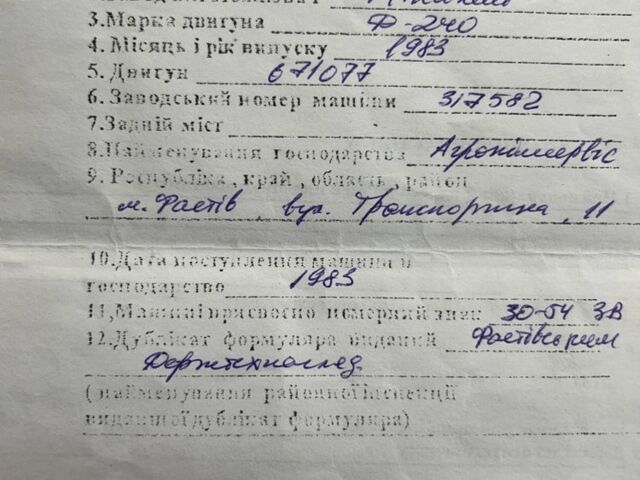 3.Марка двигуна Ф-240
4. Місяць і рік випуску 1983
5. Двигун 671077
6. Заводський номер машини 317582
7.Задній міст
8.Найменування господарства Агрохімсервіс
9. Республіка, край, область, район
м. Фастів, вул. Транспортна, 11
10.Дата поступлення машини в
господарство 1983
11,Машині присвоєно номерний знак 30-54 ЗВ
12.Дублікат формуляра виданий Фастівським
Держтехнагляд
(найменування районної інспекції
видавшої дублікат формуляра)